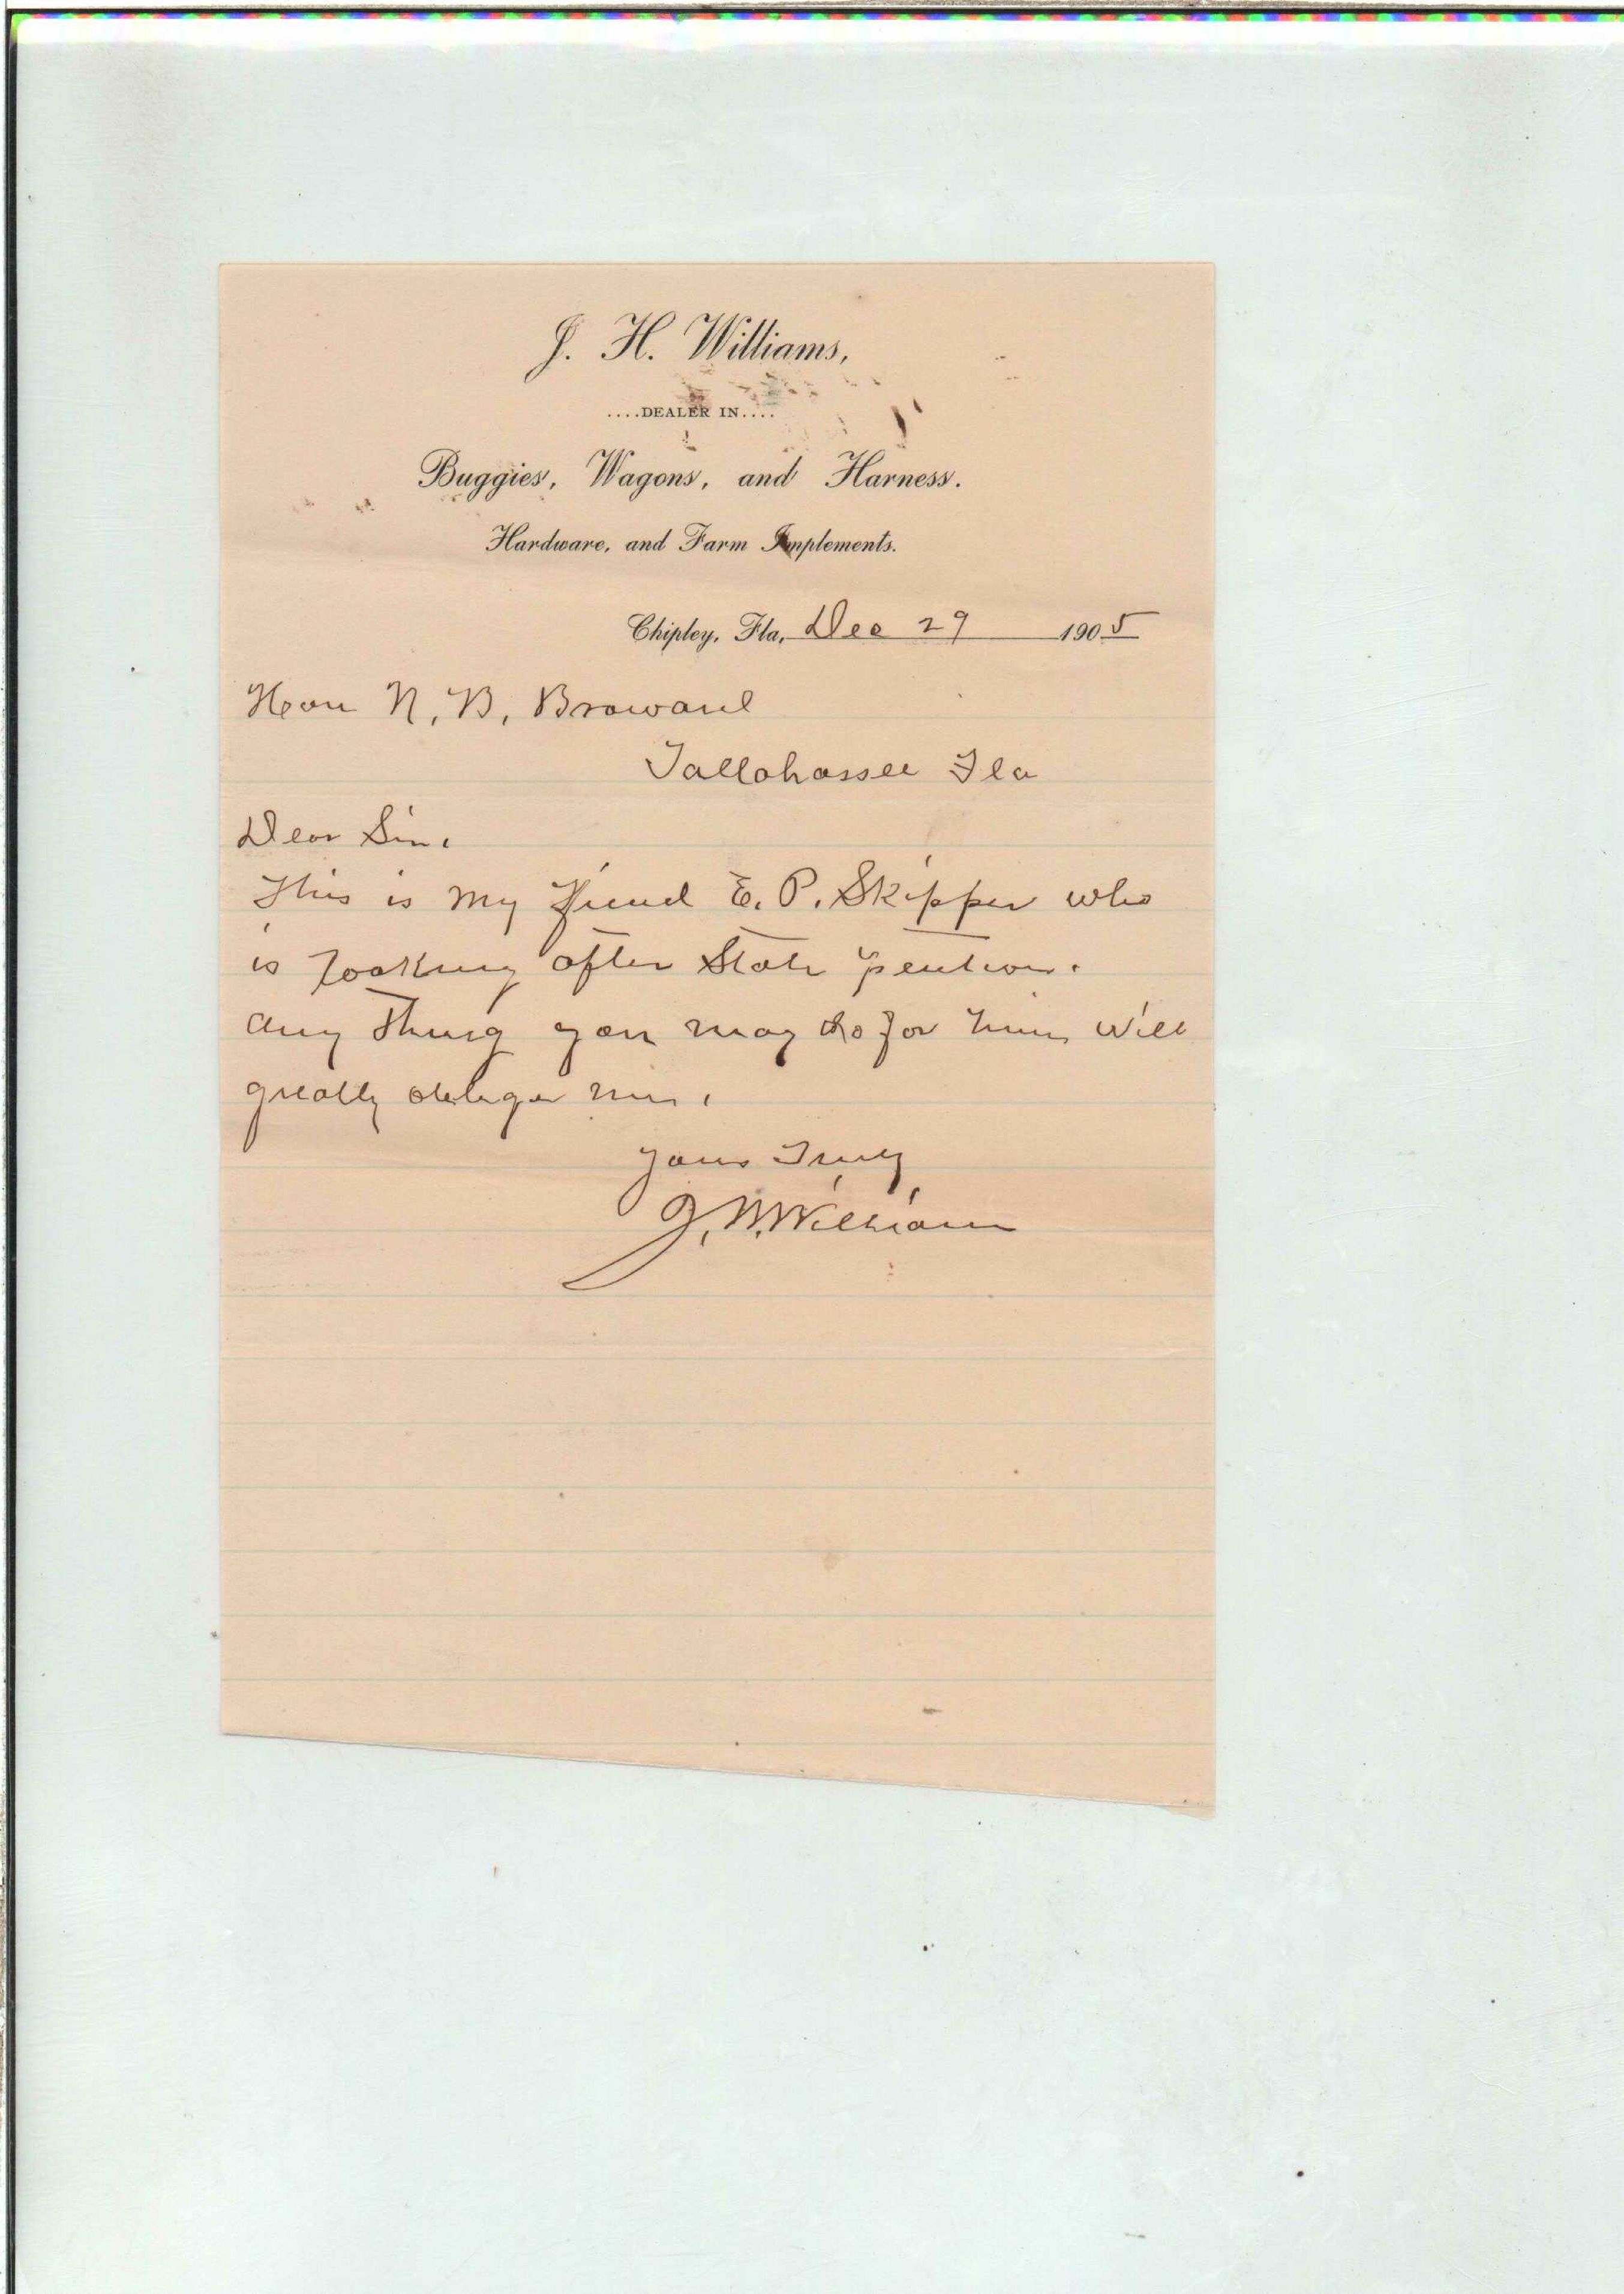 J. H. Williams,
....DEALER IN....
Buggies, Wagons, and Harness.
Hardware, and Farm Implements.
Chipley, Fla, Dec 29 1905
Hon N. B. Broward
Tallahassee Fla
Dear Sir.
This is my friend E. P. Skipper who
is looking after State pention.
Any Thing you may do for him will
greatly oblige me.
Yours Truly
J. H. Williams